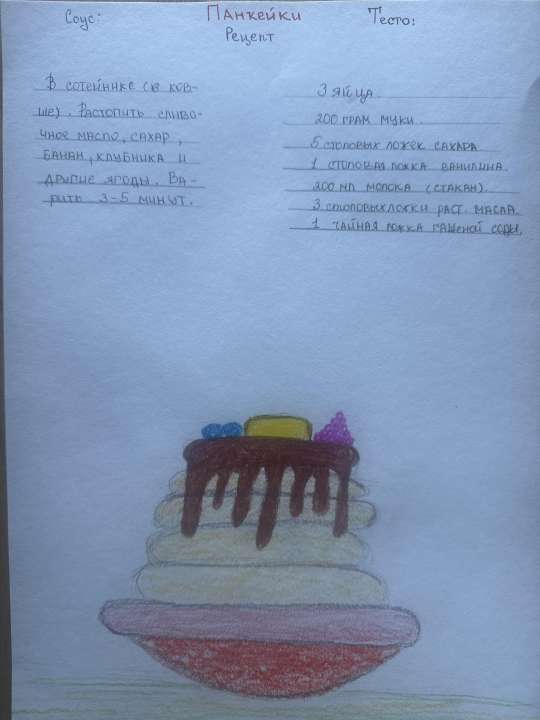 Соус:
Панкейки
Рецепт
Тесто:
В сотейнике (в ков-
ше). Растопить сливо-
чное масло, сахар,
банан, клубника и
другие ягоды. Ва-
рить 3-5 минут.
3 яйца.
200 грам муки.
5 столовых ложек сахара
1 столовая ложка ванилина.
200 мл молока (стакан).
3 столовых ложки раст. масла.
1 чайная ложка гашеной соды.